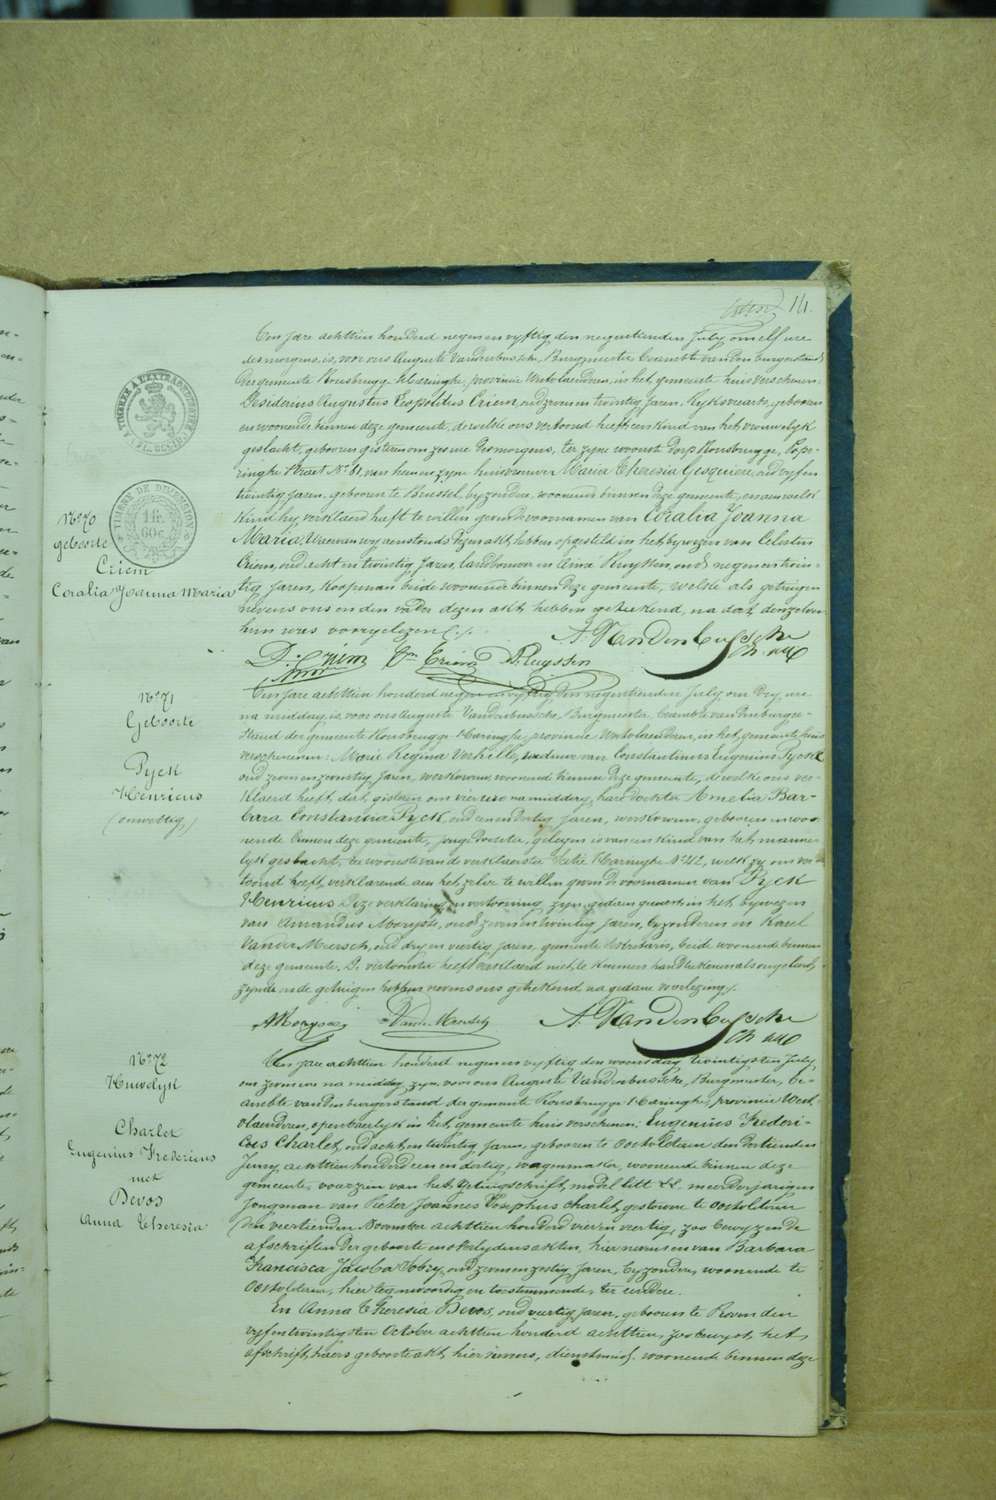 14.
Ten jare achttien honderd negen en vyftig den negentienden July, om elf ure
des morgens, is, voor ons Auguste Vandenbussche, Burgmeester Beambte van den burgerstand
der gemeente Rousbrugge-Haringhe, provincie Westvlaenderen, in het gemeente huis verschenen:
Desiderius Augustus Leopoldus Criem, oud zeven en twintig Jaren, Ryksveearts, geboren
en woonende binnen deze gemeente, dewelke ons vertoond heeft een kind van het vrouwelyk
geslacht, geboren gisteren om zes ure des morgens, ter zyne woonst Dorp Rousbrugge, Pope-
ringhe Straet No 81, van hem en zyne huisvrouw Maria Theresia Gesquiere, oud vyf en
twintig jaren, geboren te Brussel, byzondere, woonende binnen deze gemeente, en aen welk
kind hy verklaerd heeft te willen geven de voornamen van Coralia Joanna
Maria. Waervan wy aenstonds dezen akt hebben opgesteld in het bywezen van Celestin
Criem, oud acht en twintig Jaren, landbouwer en Ruyssen, oud negen en twin-
tig Jaren, koopman beide woonende binnen deze gemeente, welke als getuigen
nevens ons en den vader dezen akt hebben geteekend, na dat denzelven
hun was voorgelezen ./.
A. Vandenbussche
D. Criem Cn Criem Ruyssen
TIMBRE A L'EXTRAORDINAIRE
TIMBRE DE DIMENSION
1 fr.
60 c.
No 70
geboorte
Criem
Coralia Joanna Maria
No 71
Geboorte
Pyck
Henricus
(onwettig)
Ten jare achttien honderd negen en vyftig den negentienden July om dry ure
na middag, is, voor ons Auguste Vandenbussche, Burgmeester, beambte van den burger-
stand der gemeente Rousbrugge-Haringhe, provincie Westvlaenderen, in het gemeente huis
verschenen: Marie Regina Verhille, weduwe van Constantinus Eugenius Pyck
oud zeven en zeventig jaren, werkvrouw, woonende binnen deze gemeente, dewelke ons ver-
klaerd heeft, dat, gisteren om vier ure na middag, hare dochter Amelia Bar-
bara Constantia Pyck, oud een en dertig jaren, werkvrouw, geboren en woo-
nende binnen deze gemeente, jonge dochter, gelegen is van een kind van het manne-
lyk geslacht, ter woonste van de verklaerster Haringhe No 42, welk zy ons ver-
toond heeft, verklarende aen het zelve te willen geven de voornamen van Pyck
Henricus. Deze verklaring en vertooning zyn gedaen geweest in het bywezen
van Amandus Mooryse, oud zeven en twintig jaren, byzonderen en Karel
Vander Meersch, oud dry en veertig jaren, gemeente Secretaris, beide woonende binnen
deze gemeente. De vertoonster heeft verklaerd niet te kunnen handteekenen als ongeleerd
zynde en de getuigen hebben nevens ons geteekend, na gedane voorlezing ./.
A Mooryse VanderMeersch A. Vandenbussche
No 72
Huwelyk
Charlet
Eugenius Fredericus
met
Devos
Anna Theresia
Ten jare achttien honderd negen en vyftig den woensdag twintigsten July,
om zeven ure na middag, zyn, voor ons Auguste Vandenbussche, Burgmeester, be-
ambte van den burgerstand der gemeente Rousbrugge-Haringhe, provincie West-
vlaenderen, openbaerlyk in het gemeente huis verschenen: Eugenius Frederi-
cus Charlet, oud acht en twintig jaren, geboren te Oostvleteren den dertienden
Juny achttien honderd een en dertig, wagenmaker, woonende binnen deze
gemeente, voorzien van het getuigschrift, model litt. meerderjarigen
jongman van Pieter Joannes Josephus Charlet, gestorven te Oostvleteren
den veertienden November achttien honderd vier en veertig, zoo bewyzen de
afschriften der geboorte en sterfydens akten, hiernevens en van Barbara
Francisca Jacoba oud zeven en zestig jaren, byzondere, woonende te
Oostvleteren, hier tegenwoordig en toestemmende, ter eendere.
En Anna Theresia Devos, oud veertig jaren, geboren te den
vyf en twintigsten October achttien honderd achttien, zoo bewyst het
afschrift haers geboorte akt, hier nevens, dienstmeid, woonende binnen deze